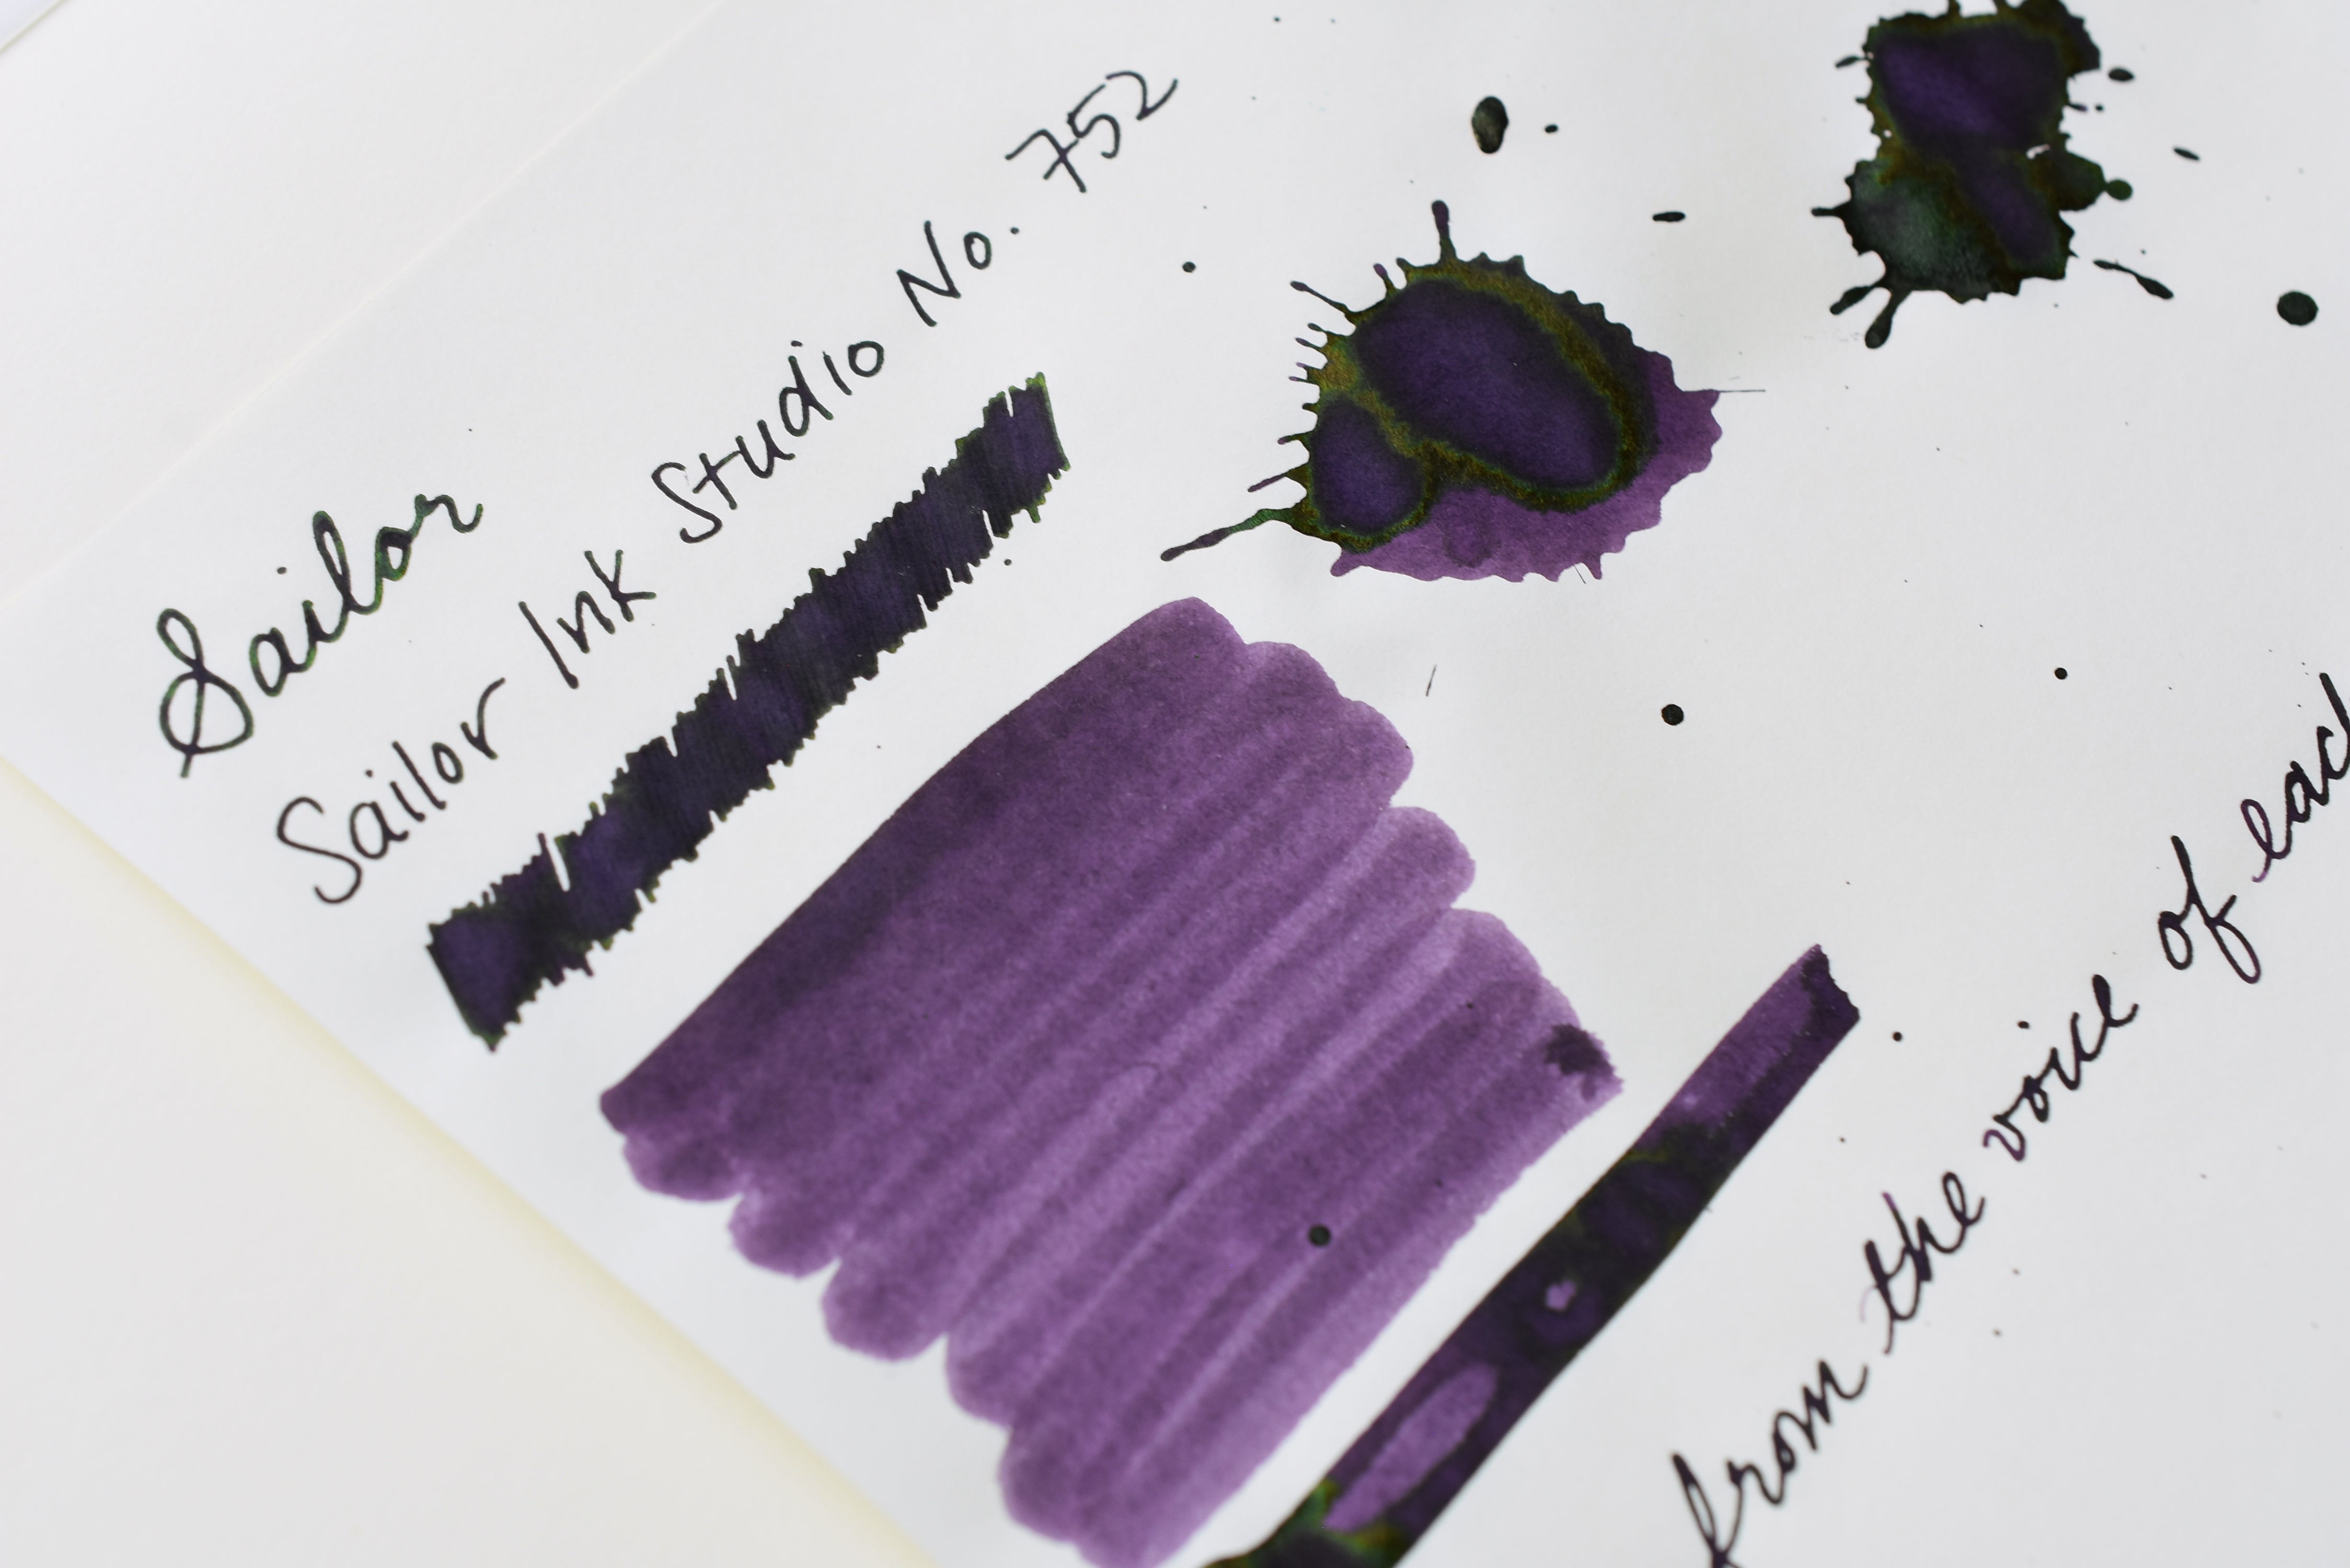 Sailor
Sailor Ink Studio No. 752
from the voice of